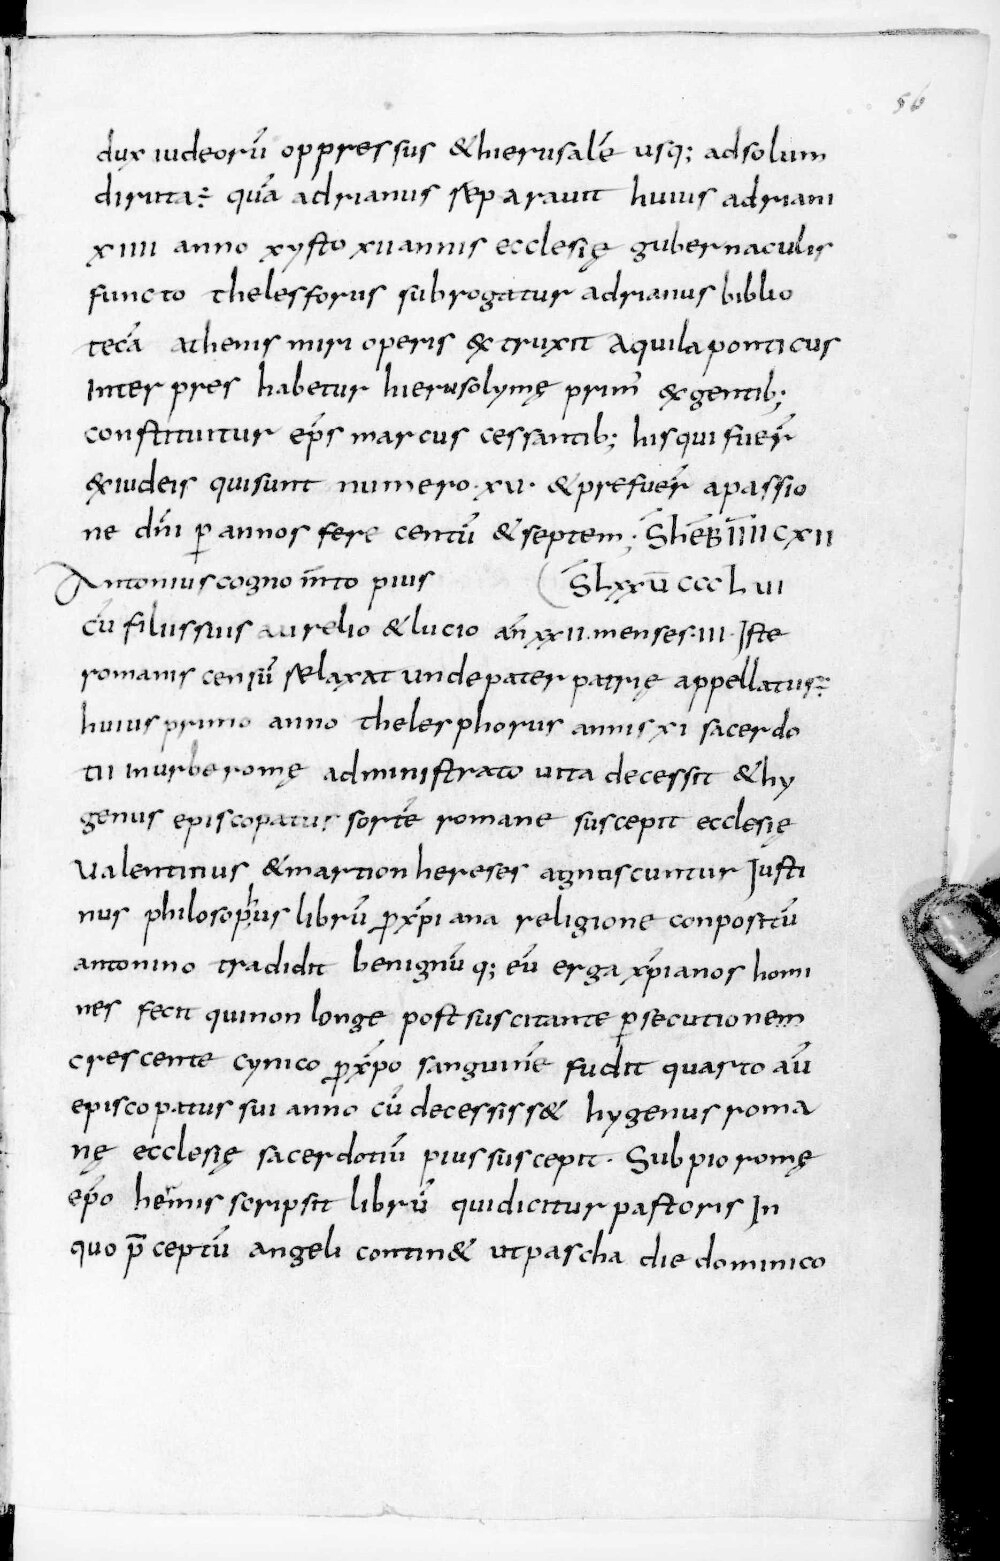 56
dux iudeorū oppressus & hierusalē usq; ad solum
diruta; quā adrianus separauit huius adriani
xiiii anno xysto xii annis ecclesię gubernaculis
functo thelesforus subrogatur adrianus biblio
tecā athenis miri operis extruxit Aquila ponticus
Interpres habetur hierusolymę prim̄ ex gentib;
constituitur ep̄s marcus cessantib; his qui fuer̄
ex iudeis qui sunt numero · xv · & prefuer̄ a passio
ne dn̄i p̄ annos fere centū & septem; S̄ HEB̄ IIII CXII
Antonius cognom̄to pius S̄ Lxxū CCCLVI
cū filiis suis aurelio & lucio an̄ xxii. menses · iii · Iste
romanis censū relaxat unde pater patrię appellatus;
huius primo anno thelesphorus annis xi sacerdo
tii in urbe romę administrato uita decessit & hy
genus episcopatus sortē romane suscepit ecclesię
Ualentinus & martion hereses agniscuntur Iusti
nus philosophus librū p xp̄iana religione conpositū
antonino tradidit benignū q; eū erga xp̄ianos homi
nes fecit qui non longe post suscitante p̄secutionem
crescente cynico p xp̄o sanguinē fudit quarto aū
episcopatus sui anno cū decessiss& hygenus roma
nę ecclesię sacerdotiū pius suscepit · Sub pio romę
ep̄o hermis scripsit librū qui dicitur pastoris In
quo p̄ceptū angeli contin& ut pascha die dominico